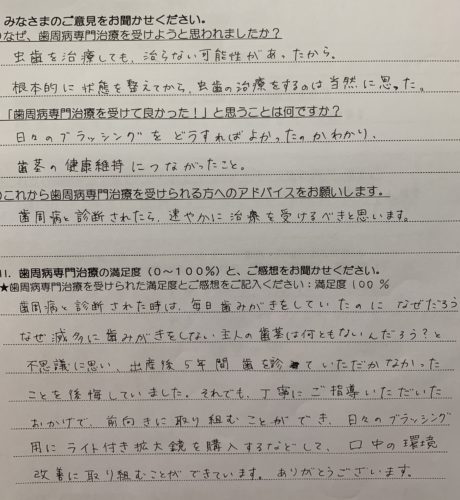 みなさまのご意見をお聞かせください。
なぜ、歯周病専門治療を受けようと思われましたか?
虫歯を治療しても、治らない可能性があったから。
根本的に状態を整えてから、虫歯の治療をするのは当然に思った。
「歯周病専門治療を受けて良かった!」と思うことは何ですか?
日々のブラッシングをどうすればよかったのかわかり、
歯茎の健康維持につながったこと。
○これから歯周病専門治療を受けられる方へのアドバイスをお願いします。
歯周病と診断されたら、速やかに治療を受けるべきと思います。
11. 歯周病専門治療の満足度(0~100%)と、ご感想をお聞かせください。
★歯周病専門治療を受けられた満足度とご感想をご記入ください:満足度 100 %
歯周病と診断された時は、毎日歯みがきをしていたのになぜだろう
なぜ滅多に歯みがきをしない主人の歯茎は何ともないんだろう?と
不思議に思い、出産後5年間歯を診ていただかなかった
ことを後悔していました。それでも、丁寧にご指導いただいた
おかげで、前向きに取り組むことができ、日々のブラッシング
用にライト付き拡大鏡を購入するなどして、口中の環境
改善に取り組むことができています。ありがとうございます。